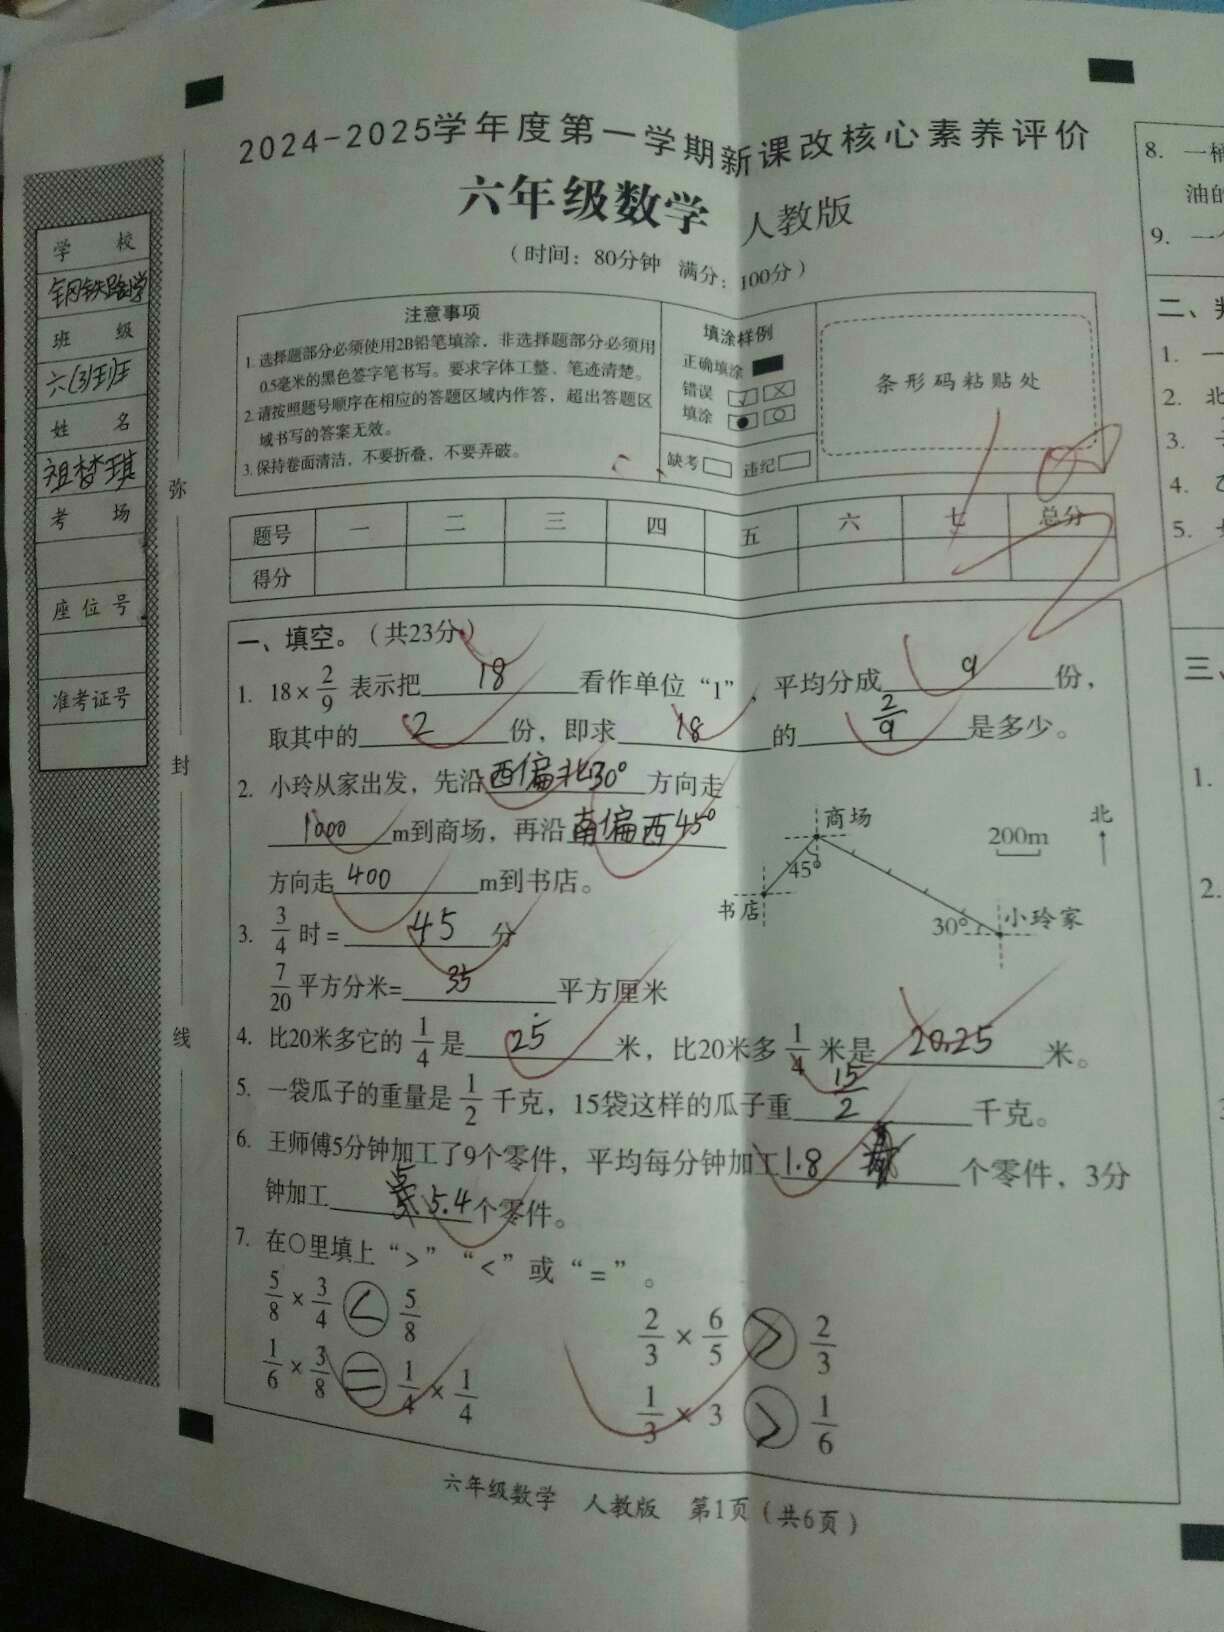 2024-2025学年度第一学期新课改核心素养评价
六年级数学 人教版
（时间：80分钟 满分：100分）
学 校
钢铁路小学
班 级
六(3)班
姓 名
祖梦琪
考 场
座 位 号
准考证号
弥
封
线
注意事项
1. 选择题部分必须使用2B铅笔填涂，非选择题部分必须用
0.5毫米的黑色签字笔书写。要求字体工整、笔迹清楚。
2. 请按照题号顺序在相应的答题区域内作答，超出答题区
域书写的答案无效。
3. 保持卷面清洁，不要折叠，不要弄破。
填涂样例
正确填涂
错误
填涂
缺考 违纪
条形码粘贴处
题号 一 二 三 四 五 六 七 总分
得分
一、填空。（共23分）
1. 18×2/9 表示把 18 看作单位“1”，平均分成 9 份，
取其中的 2 份，即求 18 的 2/9 是多少。
2. 小玲从家出发，先沿 西偏北30° 方向走
1000 m到商场，再沿 南偏西45°
方向走 400 m到书店。
商场
200m
北
45°
书店
30°
小玲家
3. 3/4 时= 45 分
7/20 平方分米= 35 平方厘米
4. 比20米多它的 1/4 是 25 米，比20米多 1/4 米是 20.25 米。
5. 一袋瓜子的重量是 1/2 千克，15袋这样的瓜子重 15/2 千克。
6. 王师傅5分钟加工了9个零件，平均每分钟加工 1.8 个零件，3分
钟加工 5.4 个零件。
7. 在○里填上“>”“<”或“=”。
5/8 × 3/4 < 5/8 2/3 × 6/5 > 2/3
1/6 × 3/8 = 1/4 × 1/4 1/3 × 3 > 1/6
六年级数学 人教版 第1页（共6页）
8. 一桶
油的
9. 一个
二、
1. 一
2. 北
3.
4. 乙
5.
三、
1.
2.